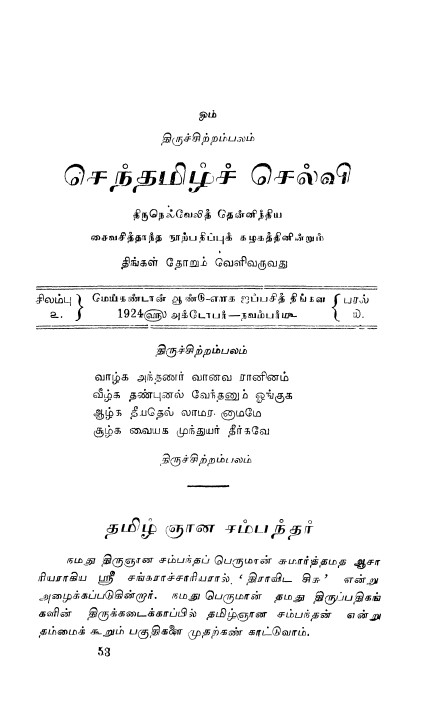 ஓம்
திருச்சிற்றம்பலம்
செந்தமிழ்ச் செல்வி
திருநெல்வேலித் தென்னிந்திய
சைவசித்தாந்த நூற்பதிப்புக் கழகத்தினின்றும்
திங்கள் தோறும் வெளிவருவது
சிலம்பு } மெய்கண்டான் ஆண்டு ஐப்பசித் திங்கள் { பரல்
உ. } 1924௵ அக்டோபர்—நவம்பர்௴ { ௰.
திருச்சிற்றம்பலம்
வாழ்க அந்தணர் வானவ ரானினம்
வீழ்க தண்புனல் வேந்தனும் ஓங்குக
ஆழ்க தீயதெல் லாமர னாமமே
சூழ்க வையக முந்துயர் தீர்கவே
திருச்சிற்றம்பலம்
தமிழ் ஞான சம்பந்தர்
நமது திருஞான சம்பந்தப் பெருமான் சுமார்த்தமத ஆசா
ரியராகிய ஸ்ரீ சங்கராச்சாரியரால், ‘திராவிட சிசு’ என்று
அழைக்கப்படுகின்றார். நமது பெருமான் தமது திருப்பதிகங்
களின் திருக்கடைக்காப்பில் தமிழ்ஞான சம்பந்தன் என்று
தம்மைக் கூறும் பகுதிகளை முதற்கண் காட்டுவாம்.
53